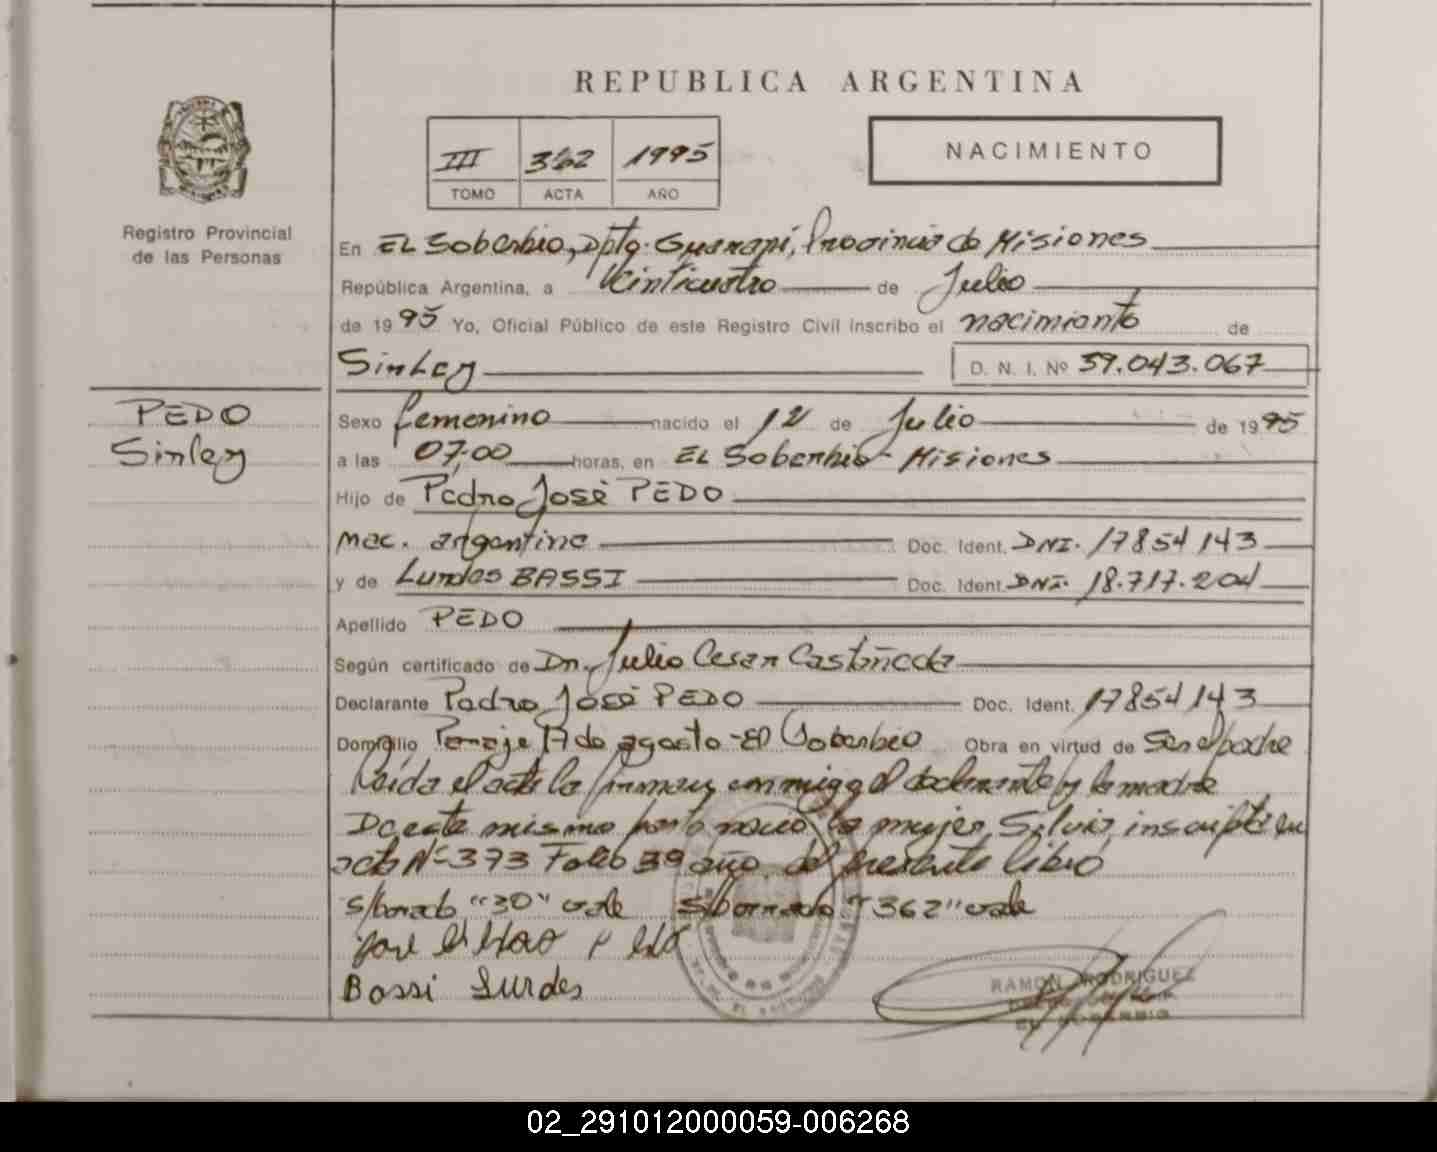 REPUBLICA ARGENTINA
III 362 1995
TOMO ACTA AÑO
NACIMIENTO
Registro Provincial
de las Personas
En EL Soberbio, Dpto. Guaraní, Provincia de Misiones
República Argentina, a Veinticuatro de Julio
de 1995 Yo, Oficial Público de este Registro Civil inscribo el nacimiento de
Sirley D. N. I. Nº 39.043.067
PEDO
Sirley
Sexo femenino nacido el 12 de Julio de 1995
a las 07,00 horas, en EL Soberbio - Misiones
Hijo de Pedro José PEDO
nac. argentina Doc. Ident. DNI. 17854143
y de Lurdes BASSI Doc. Ident. DNI. 18.717.204
Apellido PEDO
Según certificado de Dr. Julio Cesar Castañeda
Declarante Pedro José PEDO Doc. Ident. 17854143
Domicilio Paraje 17 de agosto - El Soberbio Obra en virtud de Ser el padre
Leida el acta la firman conmigo el declarante y la madre
De este mismo parto nació la mujer, Silvia, inscripta en
acta Nº 373 Folio 39 año del presente libro
s/borrado "30" vale S/borrado "362" vale
Bassi Lurdes
RAMON RODRIGUEZ
EL SOBERBIO
02_291012000059-006268